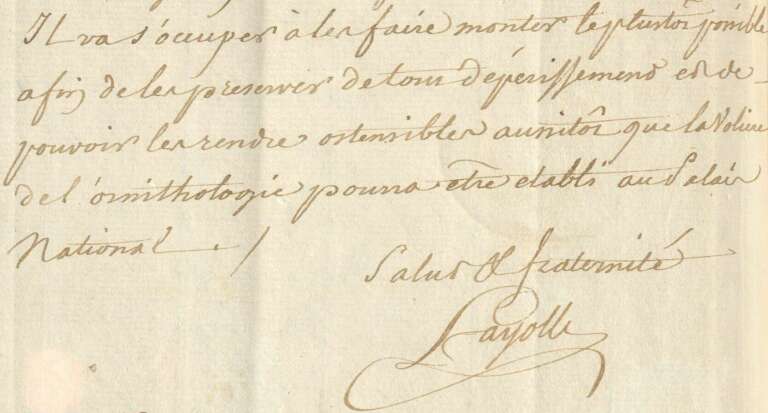 Il va s'occuper à les faire monter le plustôt possible
afin de les preserver de tous dépérissement et de
pouvoir les rendre ostensibles aussitôt que la Voliere
de l'ornithologie pourra etre etabli au Palais
National ./
Salut & fraternité
Fayolle